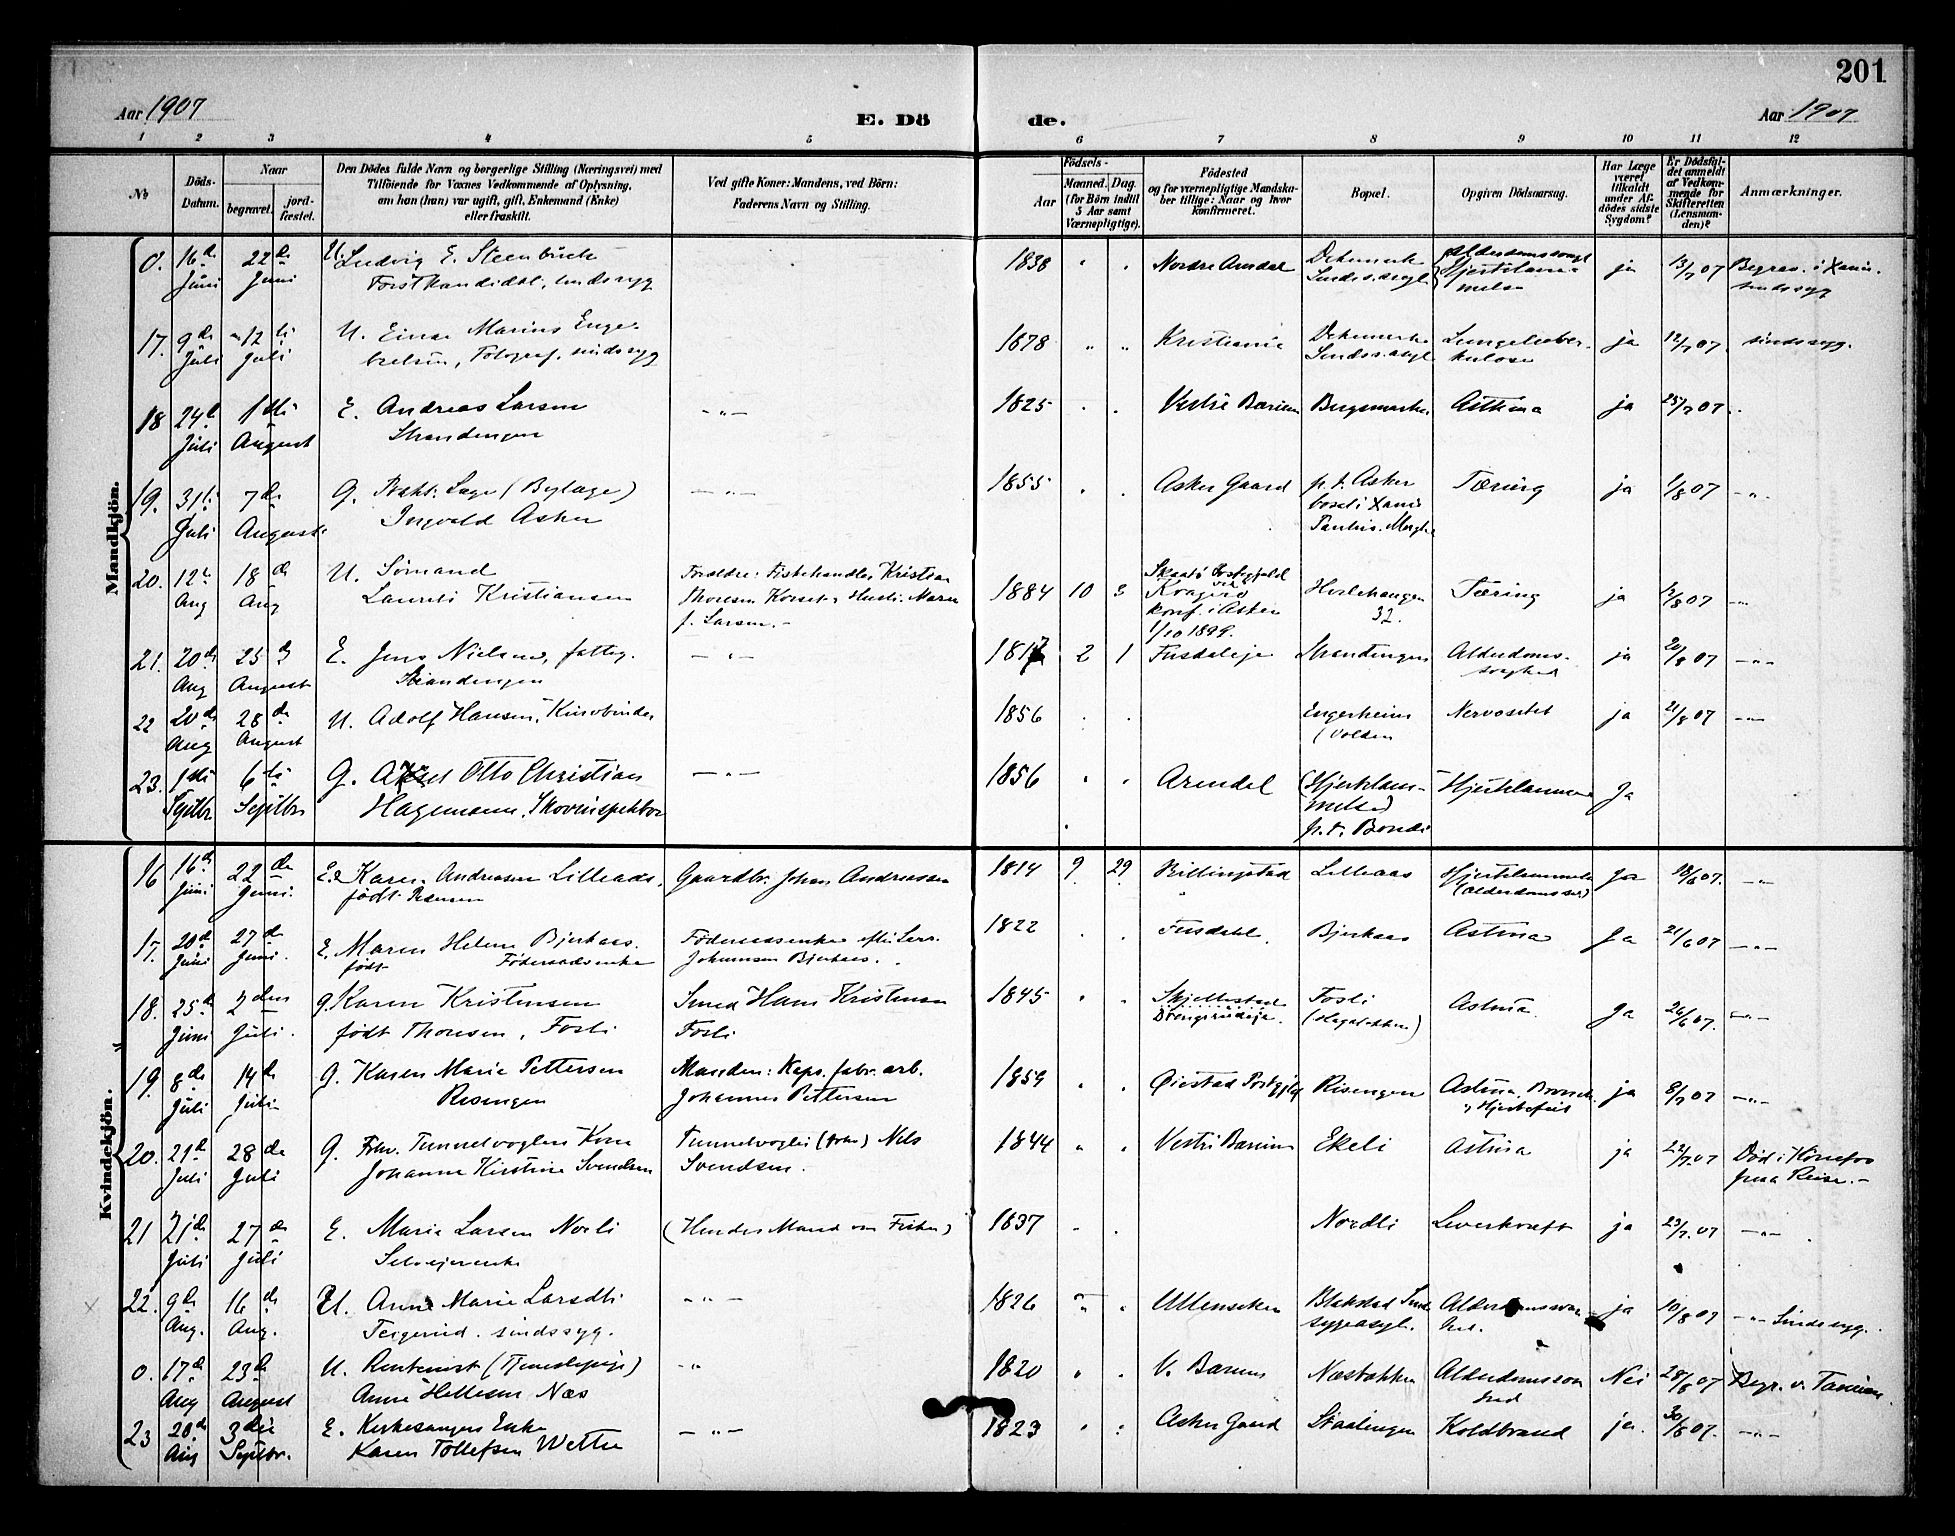 201
Aar 1907
E. Döde.
Aar 1907
1 2 3 4 5 6 7 8 9 10 11 12
No
Döds-Datum.
Naar
begravet.
jordfæstet.
Den Dödes fulde Navn og borgerlige Stilling (Næringsvei) med
Tilföiende for Voxnes Vedkommende af Oplysning,
om han (hun) var ugift, gift, Enkemand (Enke)
eller fraskilt.
Ved gifte Koner: Mandens, ved Börn:
Faderens Navn og Stilling.
Födsels-
Aar
Maaned. Dag.
(for Börn indtil
5 Aar samt
Værnepligtige).
Födested
og for værnepligtige Mandskaber tillige: Naar og hvor
konfirmeret.
Bopæl.
Opgiven Dödsaarsag.
Har Læge
været
tilkaldt
under Afdödes sidste
Sygdom?
Er Dödsfaldet anmeldt
af Vedkommende for
Skifteretten
(Lensmanden)?
Anmærkninger.
Mandkjön.
0. 16de Juni 22de Juni U. Ludvig E. Steenbuch 1838 " " Nordre Aurdal Dekemarke Sindssasyl Hjertelammelse ja 13/7 07 Begrav. i Xania.
Forstkandidat, sindssyg sindssyg
17. 9de Juli 12te Juli U. Einar Marius Engebretsen, Fotograf, sindssyg 1878 " " Kristiania Dekemarke Sindssasyl Lungetuberkulose ja 12/7 07. sindssyg.
18 24de Juli 1ste August E. Andreas Larsen Strandengen -"- 1825 . . Vestre Bærum Bergsmarken Asthma ja 25/7 07.
19. 31te Juli 7de August G. Ingvald Asker -"- 1855 . . Asker Gaard p. t. Asker bosat i Xania Tæring ja 1/8 07 -"-
20. 12te Aug 18de Aug U. Sömand Laurits Kristiansen Forældre: Fiskehandler Kristian Thoresen f. Larsen.- 1884 10 3 Kragerö konf. i Asker 1/10 1899. 32. Tæring ja 13/8 07 -"-
21. 20de Aug 25de August E. Jens Nielsen, fattig. Strandengen -"- 1817 2 1 Fusdaleje Strandengen Alderdomssvaghed ja 20/8 07 -"-
22 20de Aug 28de August U. Adolf Hansen, Kurvbinder 1856 . . Engerheim (Volden Nervositet ja 21/8 07 -"-
23. 1ste Septbr. 6te Septbr G. Axel Otto Christian Hagemann, Skovinspektör -"- 1856 " " Arendal (Hjertelammelse) p. t. Bondi Hjertelammelse Ja
Kvindekjön.
16 16de Juni 22de Juni. E. Karen Andreasen Lilleaas, födt Hansen Gaardbr. Johan Andreassen 1814 9 29 Billingstad Lilleaas Hjertelammelse (Alderdomssv.) Ja 18/6 07. -"-
17. 20de Juni 27de Juni. E. Maren Helene Bjerkaas. födt Föderaadsenke Föderaadsenke efter Lars Johannsen Bjerkaas. 1822 . . Fusdahl. Bjerkaas Astma Ja 21/6 07 -"-
18. 25de Juni 2den Juli. g. Karen Kristensen födt Thoresen, Fosli Smed Hans Kristensen Fosli 1845 " " Skjellestad Drengsrudeje. Fosli (Hagaløkken) Astma. Ja 26/6 07. -"-
19. 8de Juli 14de Juli G. Karen Marie Pettersen Risengen Manden: Kaps. fabr. arb. Johannes Pettersen 1859 " . Øiestad Risengen Astma, Bronch. & Hjertefeil ja 8/7 07 -"-
20. 21de Juli 28de Juli G. Fhv. Tunnelvogters Kone Johanne Kirstine Svendsen Tunnelvogter (forh.) Nels Svendsen. 1844 " . Vestre Bærum Ekeli Astma ja 22/7 07 Död i Hönefos paa Reise.-
21 21de Juli 27de Juli E. Marie Larsen Norli Selveierenke (Hendes Mand var Fisker) 1837 . . Nordli Leverkræft ja 23/7. 07 -"-
22. 9de Aug. 16de Aug. U. Anne Marie Larsdtr Teigerud. sindssyg. -"- 1826 " " Ullensaker Blakstad Sindssygeasyl. Alderdomssvaghed. ja 10/8 07 -"- Sindssyg.
0. 17de Aug 23de August U. Rentenist (Tjenestepige) Anne Hellesen Næs -"- 1820 . . V. Bærum Næsbakken Alderdomssvaghed Nei 28/8 07 Begr. v. Tanum
23 28de Aug 3die Septbr. E. Kirkesangers Enke Karen Tollefsen Wettre -"- 1823 " : Asker Gaard Staalingen Koldbrand ja. 30/8 07. -"-